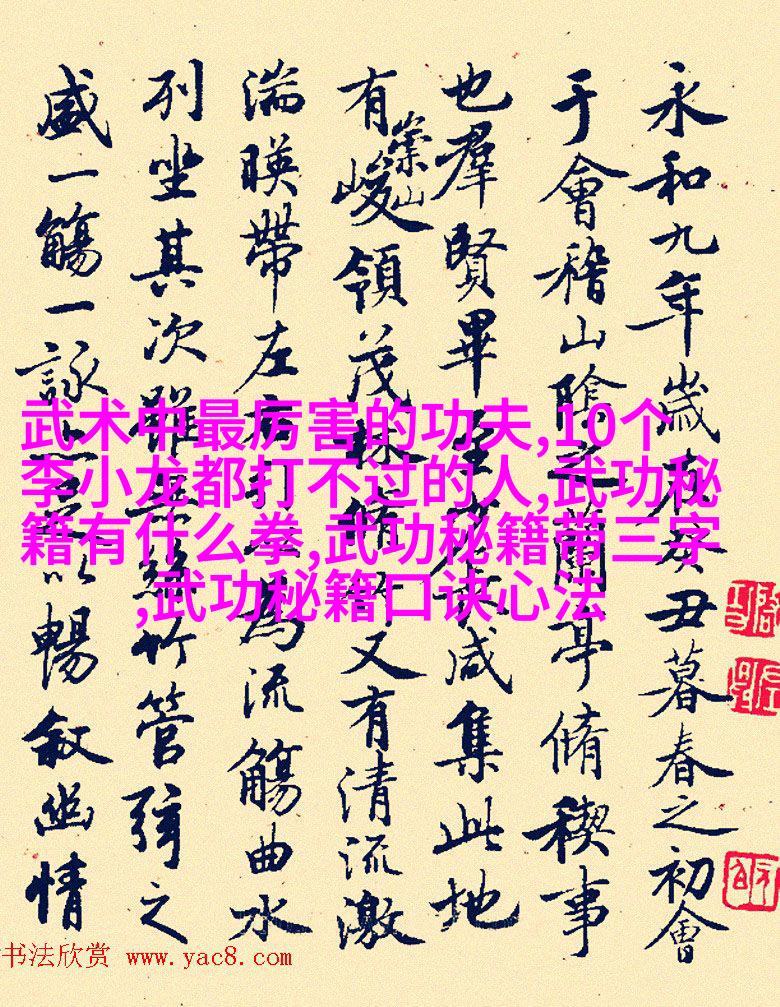 永和九年歲在癸丑暮春之初會
于會稽山陰之蘭亭脩稧事
也羣賢畢至少長咸集此地
有崇山峻領茂林脩竹又有清流激
湍暎帶左右引以為流觴曲水
列坐其次雖無絲竹管弦之
盛一觴一詠亦足以暢敘幽情
武术中最厉害的功夫,10个
李小龙都打不过的人,武功秘
籍有什么拳,武功秘籍带三字
,武功秘籍口诀心法
书法欣赏 www.yac8.com